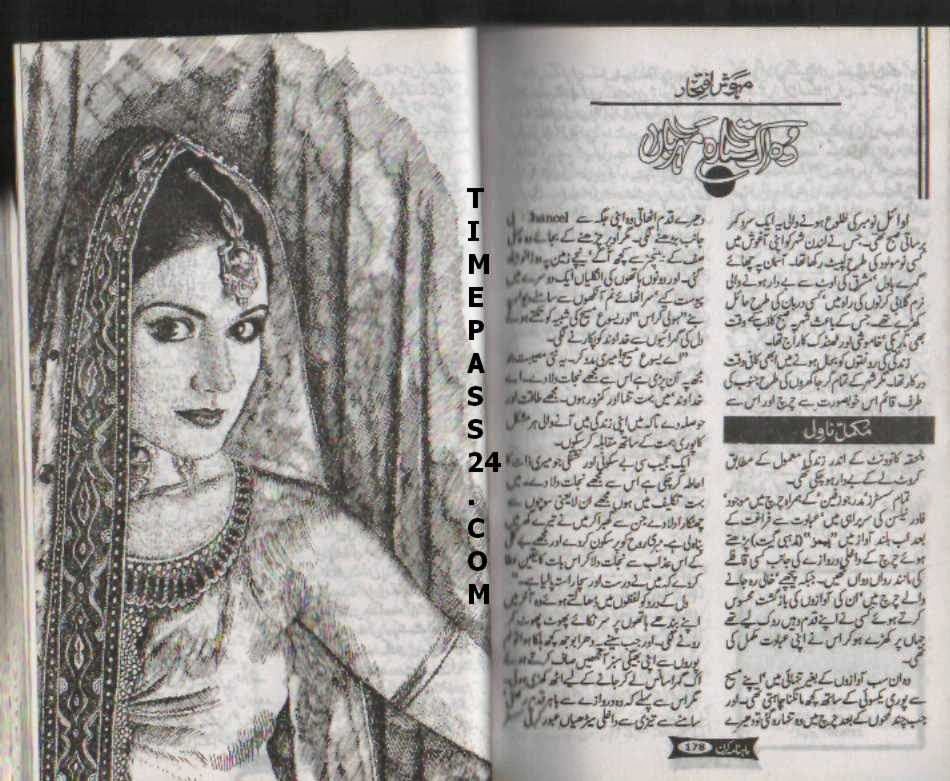 مہوش افتخار
وہ اک ستارہ مہرباں
اوائل نومبر کی طلوع ہونے والی یہ ایک سرد کہر
برساتی صبح تھی۔ جس نے لندن شہر کو اپنی آغوش میں
کسی نومولود کی طرح لپیٹ رکھا تھا۔ آسمان پہ چھائے
گہرے بادل مشرق کی اوٹ سے بے دار ہونے والی
نرم گلابی کرنوں کی راہ میں کسی دربان کی طرح حائل
ہو گئے تھے۔ جس کے باعث شہر پہ صبح کے اس وقت
بھی تاریکی، خاموشی اور ٹھنڈک کا راج تھا۔
زندگی کی رونقوں کو بحال ہونے میں ابھی کافی وقت
درکار تھا۔ مگر شہر کے تمام گرجا گھروں کی طرح جنوب کی
طرف قائم اس خوبصورت سے چرچ اور اس سے
مکمل ناول
ملحقہ کانونٹ کے اندر زندگی معمول کے مطابق
کروٹ لے کے بے دار ہو چکی تھی۔
تمام سسٹرز "مدر جوزفین" کے ہمراہ چرچ میں موجود
فادر نیلسن کی سربراہی میں عبادت سے فراغت کے
بعد اب بلند آواز میں (مذہبی گیت) پڑھتے
ہوئے چرچ کے داخلی دروازے کی جانب کسی قافلے
کی مانند رواں دواں تھیں۔ جبکہ پیچھے خالی رہ جانے
والے چرچ میں ان کی آوازوں کی بازگشت محسوس
کرتے ہوئے کسی نے اپنے قدم وہیں روک لیے تھے
جہاں پر کھڑے ہو کر اس نے اپنی عبادت مکمل کی
تھی۔
وہ ان سب آوازوں کے بغیر تنہائی میں اپنے مسیح
سے پوری یکسوئی کے ساتھ کچھ مانگنا چاہتی تھی۔ اور
جب چند لمحوں کے بعد چرچ میں وہ تنہا رہ گئی تو دھیرے
دھیرے قدم اٹھاتی وہ اپنی جگہ سے Chancel کی
جانب بڑھنے لگی۔ مگر اوپر چڑھنے کے بجائے وہ
صف کے بینچز سے کچھ آگے نیچے زمین پہ دو زانو
گئی۔ اور دونوں ہاتھوں کی انگلیاں ایک دوسرے میں
پیوست کیے سر اٹھائے نم آنکھوں سے سامنے
بنے "ہولی کراس" اور یسوع مسیح کی شبیہہ کو تکتے ہوئے
دل کی گہرائیوں سے خداوند کو پکارنے لگی۔
"اے یسوع مسیح! میری مدد کر۔ یہ نئی مصیبت
مجھ پہ آن پڑی ہے اس سے مجھے نجات دلا دے۔ اے
خداوند میں بہت تنہا اور کمزور ہوں۔ مجھے طاقت اور
حوصلہ دے تاکہ میں اپنی زندگی میں آنے والی ہر مشکل
کا پوری ہمت کے ساتھ مقابلہ کر سکوں۔
ایک عجیب سی بے سکونی اور تشنگی جو میری ذات کا
احاطہ کر چکی ہے اس سے مجھے نجات دلا دے۔ میں
بہت تکلیف میں ہوں مجھے ان لایعنی سوچوں سے
چھٹکارا دلا دے جن سے گھبرا کر میں نے تیرے گھر میں
پناہ لی ہے۔ میری روح کو پرسکون کر دے اور مجھے بے کلی
کے اس عذاب سے نجات دلا کر اس بات کا یقین عطا
کر دے کہ میں نے درست اور سچا راستہ پا لیا ہے۔"
دل کے درد کو لفظوں میں ڈھالتے ہوئے وہ آخر میں
اپنے بندھے ہاتھوں پر سر ٹکائے پھوٹ پھوٹ کر
رونے لگی۔ اور جب سینے پہ دھرا بوجھ کچھ ہلکا ہوا تو
پوروں سے اپنی بھیگی سبز آنکھیں صاف کرتے ہوئے
اک گہرا سانس لے کر جانے کے لیے اٹھ کھڑی ہوئی۔
مگر اس سے پہلے کہ وہ دروازے سے باہر قدم رکھتی
سامنے سے تیزی سے داخلی سیڑھیاں عبور کرتی
ماہنامہ کرن 178
TIMEPASS24.COM